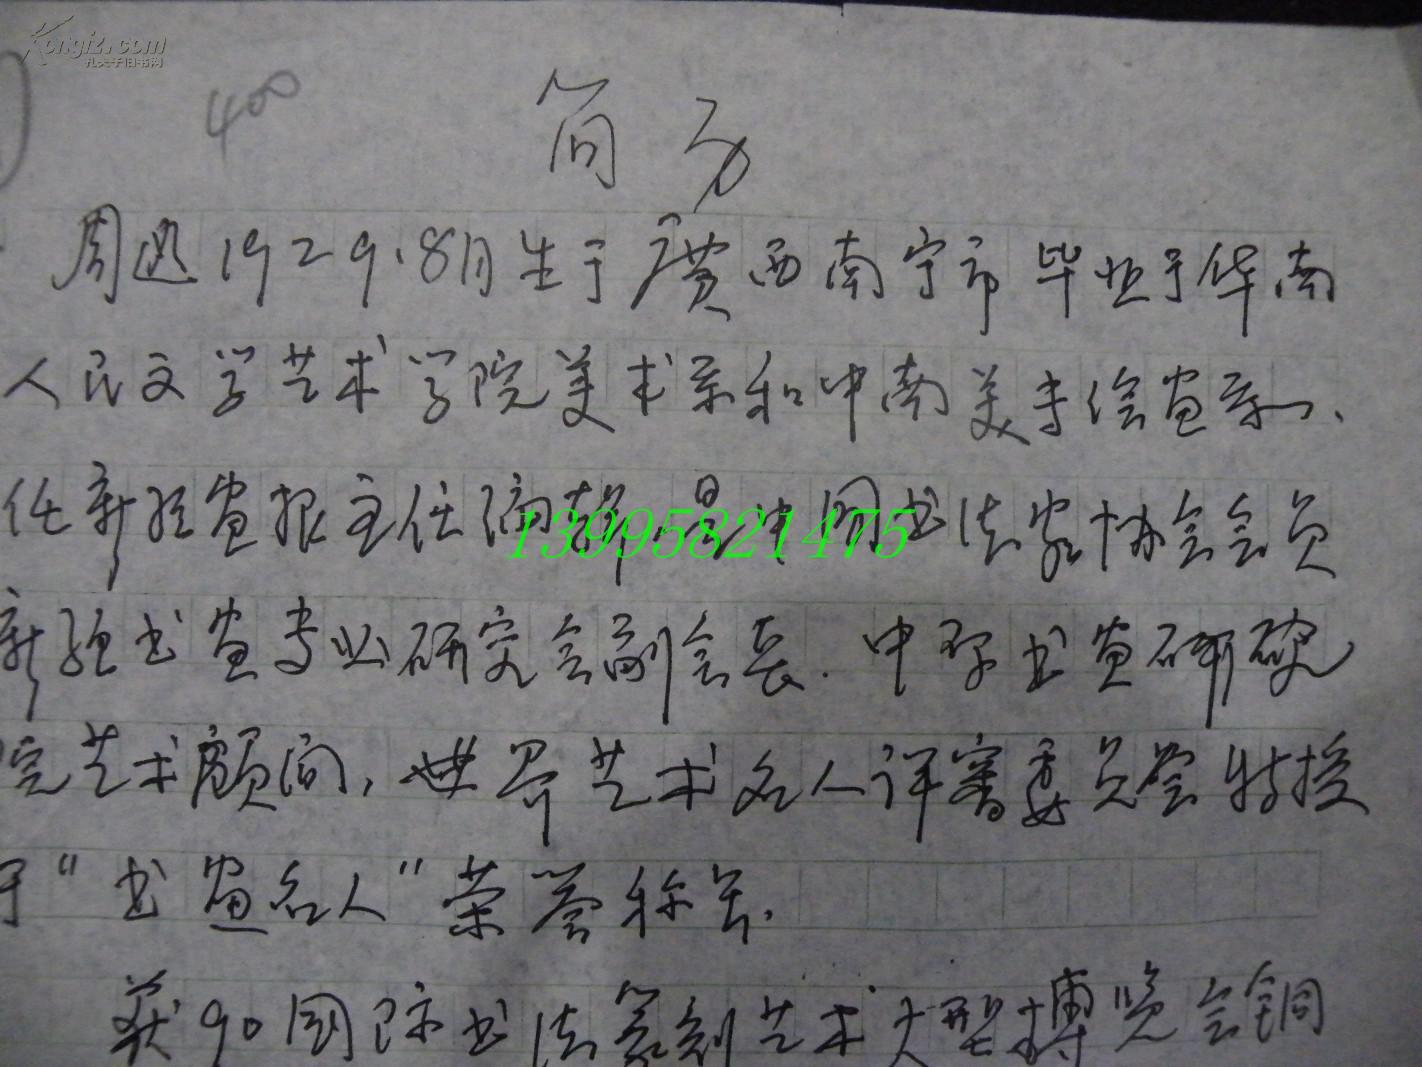 Kongfz.com
孔夫子旧书网
400
简历
周迅1929.8月生于广西南宁市毕业于华南
人民文学艺术学院美术系和中南美专绘画系、
任新疆画报主任编辑,是中国书法家协会会员
新疆书画专业研究会副会长.中孚书画研究
院艺术顾问,世界艺术名人评审委员会特授
予“书画名人”荣誉称号.
获90国际书法篆刻艺术大型博览会铜
13995821475